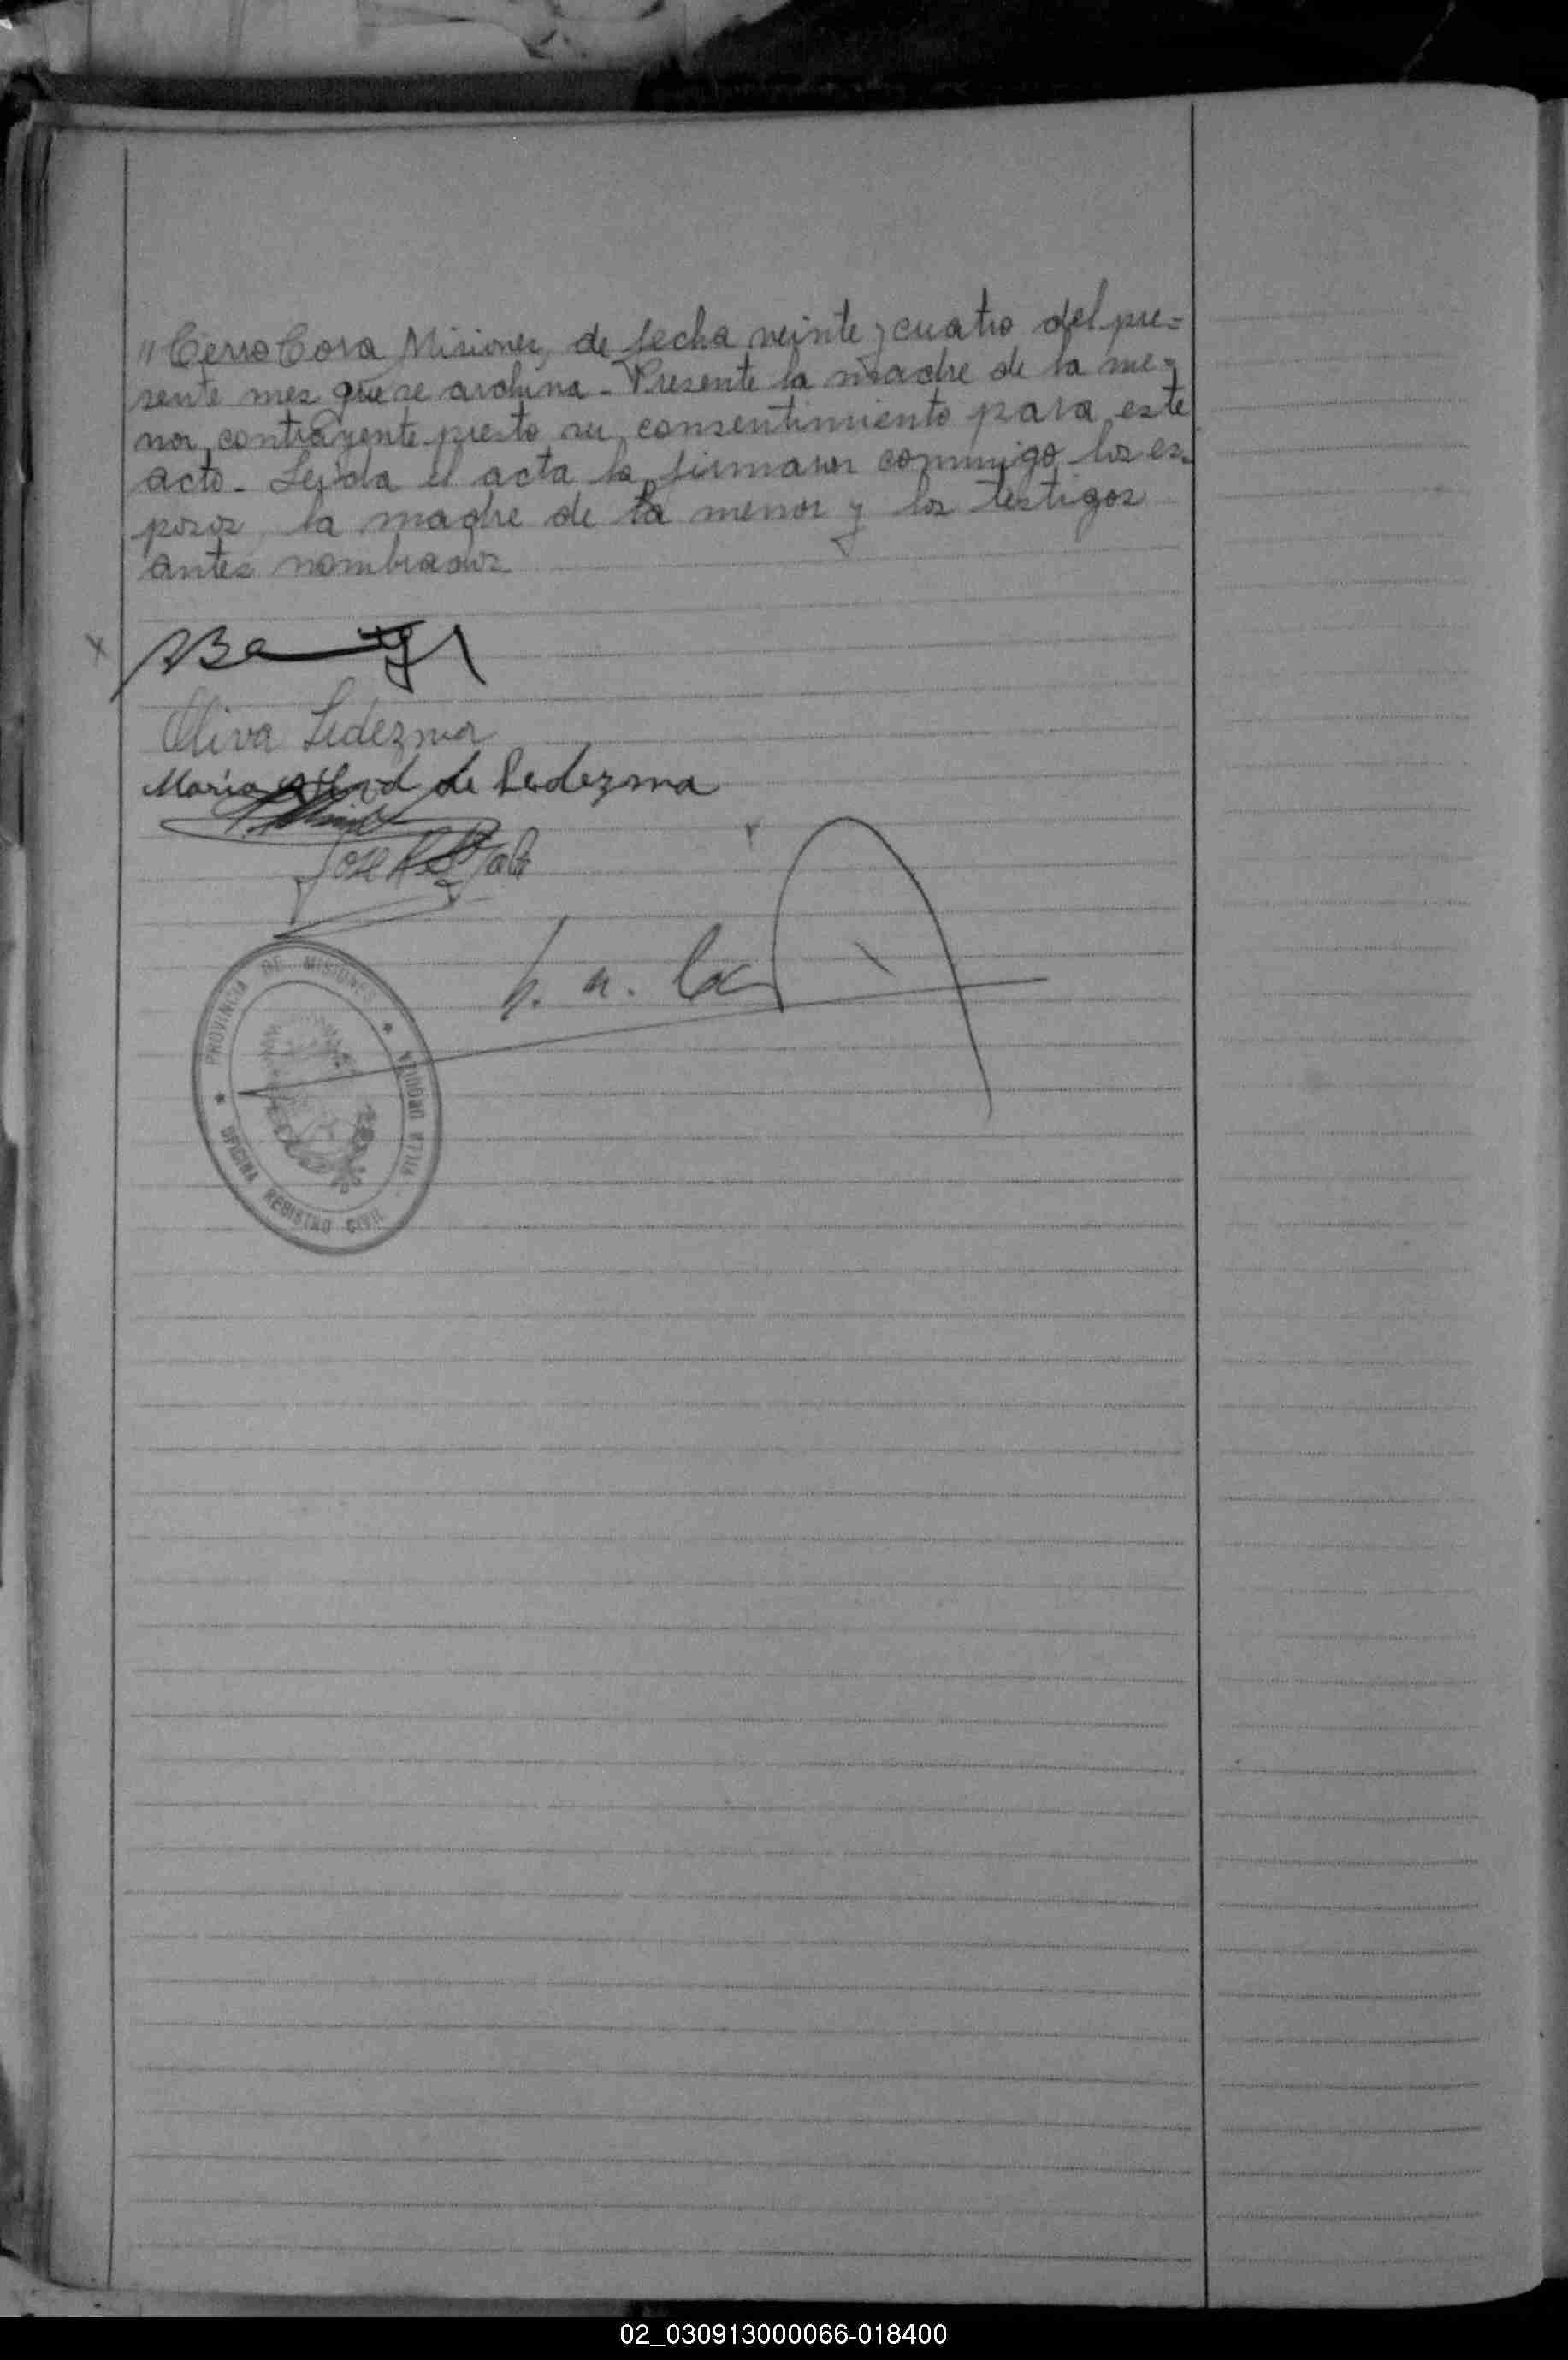 "Cerro Cora Misiones, de fecha veinte y cuatro del pre=
sente mes que se archiva - Presente la madre de la me=
nor contrayente presto su consentimiento para este
acto - Leida el acta la firmaron conmigo los es-
posos, la madre de la menor y los testigos
antes nombrados
Oliva Ledezma
Maria de Ledezma
Jose
PROVINCIA DE MISIONES
OFICINA REGISTRO CIVIL
02_030913000066-018400